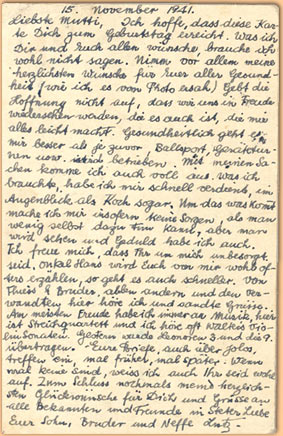 15. November 1941.
Liebste Mutti, Ich hoffe, dass diese Kar-
te Dich zum Geburtstag erreicht. Was ich
Dir und Euch allen wünsche, brauche ich
wohl nicht sagen. Nimm vor allem meine
herzlichsten Wünsche für Euer aller Gesund-
heit (wie ich es vom Photo ersah) Gebt die
Hoffnung nicht auf, dass wir uns in Freude
wiedersehen werden, die es auch ist, die mir
alles leicht macht. Gesundheitlich geht es
mir besser als je zuvor, Ballsport,
usw. betrieben. Mit meinen Sa-
chen komme ich auch voll aus. Was ich
brauchte, habe ich mir schnell verdient, im
Augenblicke als Koch sogar. Um das was kommt
mache ich mir insofern keine Sorgen, als man
wenig selbst dazu tun kann, aber man
wird sehen und Geduld habe ich auch.
Ich freue mich, dass Ihr um mich unbesorgt
seid, Onkel Hans wird Euch von mir wohl öf-
ters erzählen, so geht es auch schneller. Von
Bruder, allen andern und den Ver-
wandten hier höre ich und sandte Grüsse.
Am meisten Freude habe ich immer an Musik, hier
ist Streichquartett und ich höre oft
Sonaten. Gestern wurde Leonoren 3 und die 9.
übertragen. Eure Briefe, auch über
treffen ein, mal früher, mal später. Wenn
mal keine sind, weiss ich auch Ihr seid wohl-
auf. Zum Schluss nochmals meine herzlich-
sten Glückwünsche für Dich und Grüsse an
alle Bekannten und Freunde in steter Liebe
Euer Sohn, Bruder und Neffe